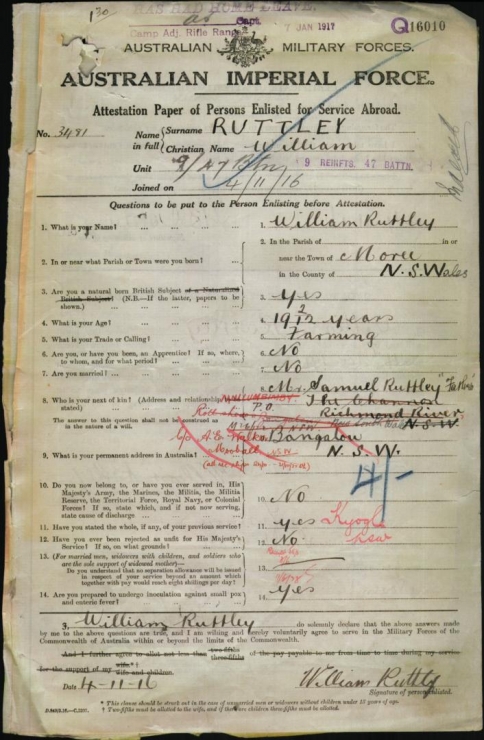 HAS HAD HOME LEAVE.
130 Capt. 7 JAN 1917 Q16010
Camp Adj. Rifle Range
AUSTRALIAN MILITARY FORCES.
AUSTRALIAN IMPERIAL FORCE.
Attestation Paper of Persons Enlisted for Service Abroad.
No. 3481 Name in full { Surname RUTTLEY
Christian Name William
Unit 9/47 Btn 9 REINFTS. 47 BATTN.
Joined on 4/11/16
Questions to be put to the Person Enlisting before Attestation.
1. What is your Name? 1. William Ruttley
2. In or near what Parish or Town were you born? 2. In the Parish of in or
near the Town of Moree
in the County of N.S.Wales
3. Are you a natural born British Subject or a Naturalized
British Subject? (N.B.—If the latter, papers to be
shown.) 3. Yes
4. What is your Age? 4. 19 2/12 years
5. What is your Trade or Calling? 5. Farming
6. Are you, or have you been, an Apprentice? If so, where,
to whom, and for what period? 6. No
7. Are you married? 7. No
8. Who is your next of kin? (Address and relationship
stated) 8. Mr. Samuel Ruttley "Father"
The Channon
P.O. Richmond River
New South Wales N.S.W.
The answer to this question shall not be construed as
in the nature of a will.
9. What is your permanent address in Australia? 9. Bangalow
N.S.W.
4/-
10. Do you now belong to, or have you ever served in, His
Majesty's Army, the Marines, the Militia, the Militia
Reserve, the Territorial Force, Royal Navy, or Colonial
Forces? If so, state which, and if not now serving,
state cause of discharge 10. No
11. Have you stated the whole, if any, of your previous service? 11. Yes Kyogle
12. Have you ever been rejected as unfit for His Majesty's
Service? If so, on what grounds? 12. No NSW
13. (For married men, widowers with children, and soldiers who
are the sole support of widowed mother)—
Do you understand that no separation allowance will be issued
in respect of your service beyond an amount which
together with pay would reach eight shillings per day? 13.
14. Are you prepared to undergo inoculation against small pox
and enteric fever? 14. Yes
I, William Ruttley do solemnly declare that the above answers made
by me to the above questions are true, and I am willing and hereby voluntarily agree to serve in the Military Forces of the
Commonwealth of Australia within or beyond the limits of the Commonwealth.
And I further agree to allot not less than two-fifths three-fifths of the pay payable to me from time to time during my service
for the support of my wife * wife and children.
Date 4-11-16 William Ruttley
Signature of person enlisted.
* This clause should be struck out in the case of unmarried men or widowers without children under 18 years of age.
† Two-fifths must be allotted to the wife, and if there are children three-fifths must be allotted.